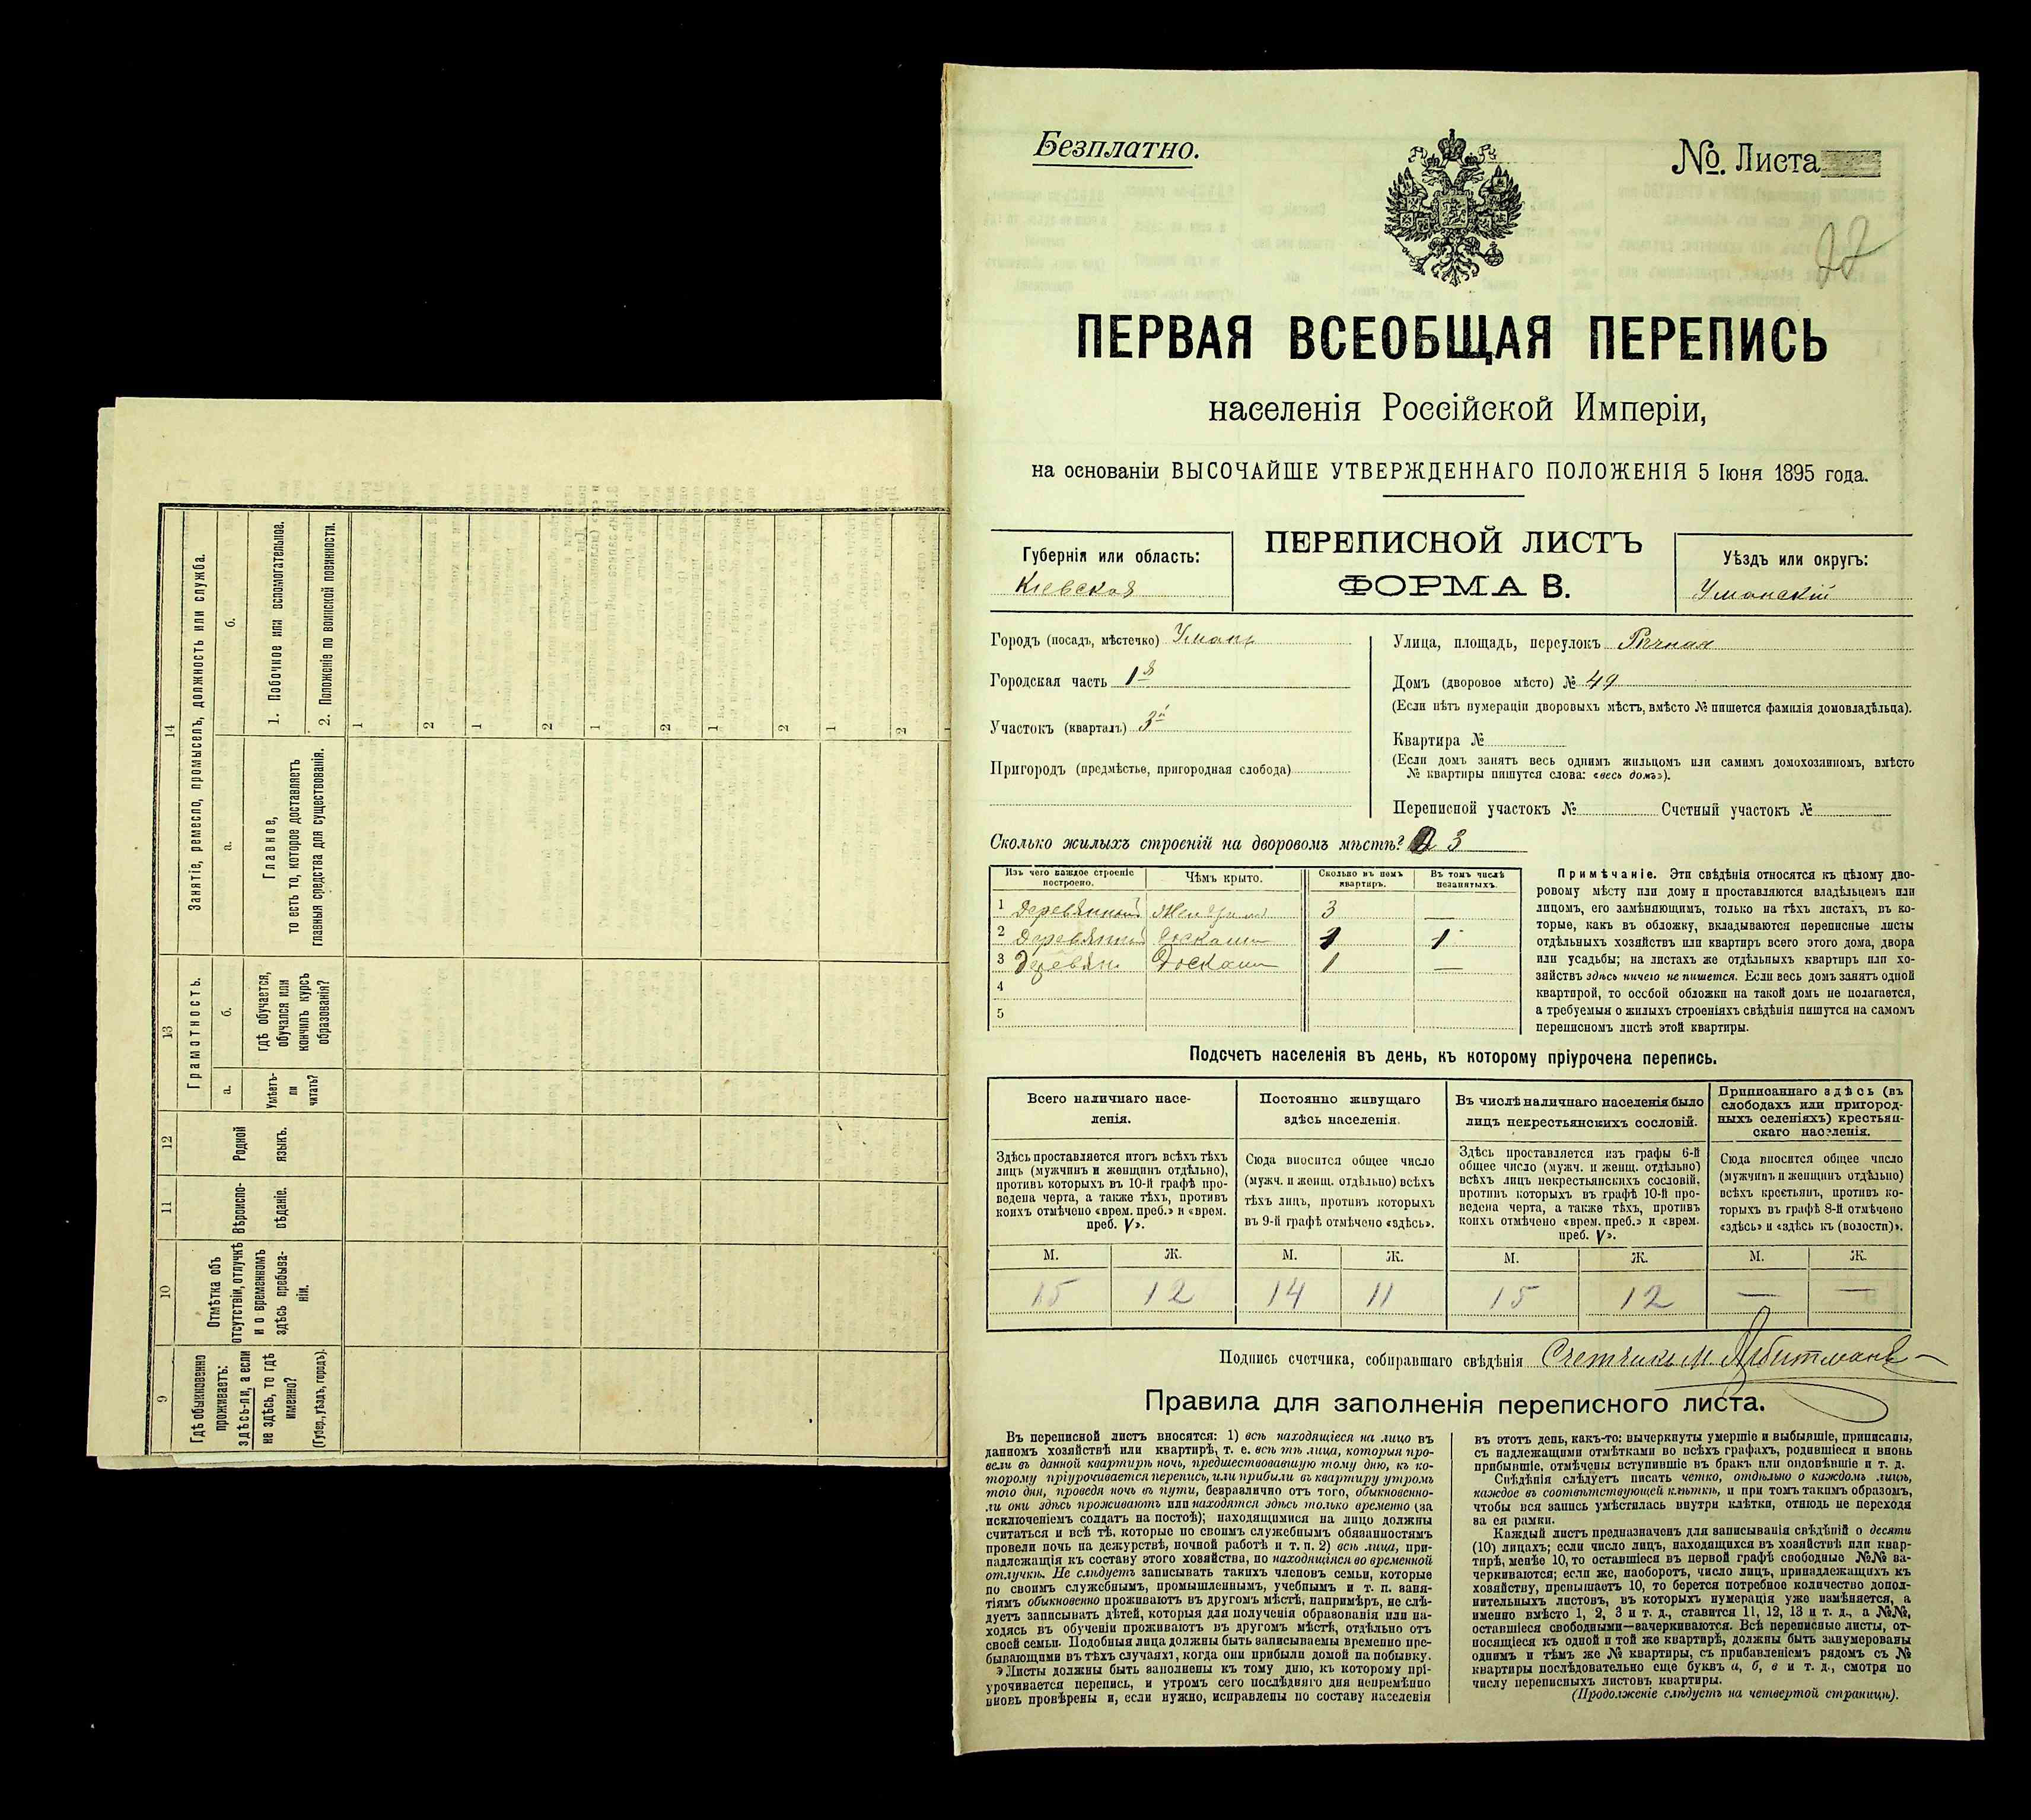 Безплатно.
№. Листа
ПЕРВАЯ ВСЕОБЩАЯ ПЕРЕПИСЬ
населенія Россійской Имперіи,
на основаніи ВЫСОЧАЙШЕ УТВЕРЖДЕННАГО ПОЛОЖЕНІЯ 5 Іюня 1895 года.
ПЕРЕПИСНОЙ ЛИСТЪ
ФОРМА В.
Губернія или область:
Кіевская
Уѣздъ или округъ:
Уманскій
Городъ (посадъ, мѣстечко) Умань
Городская часть 1я
Участокъ (кварталъ) 3й
Пригородъ (предмѣстье, пригородная слобода)
Улица, площадь, переулокъ Рѣчная
Домъ (дворовое мѣсто) № 49
(Если нѣтъ нумераціи дворовыхъ мѣстъ, вмѣсто № пишется фамилія домовладѣльца).
Квартира №
(Если домъ занятъ весь однимъ жильцомъ или самимъ домохозяиномъ, вмѣсто
№ квартиры пишутся слова: «весь домъ»).
Переписной участокъ № Счетный участокъ №
Сколько жилыхъ строеній на дворовомъ мѣстѣ? 3
Изъ чего каждое строеніе построено.
Чѣмъ крыто.
Сколько въ немъ квартиръ.
Въ томъ числѣ незанятыхъ.
1 Деревянный 3 —
2 Деревянный Досками 1 1
3 Деревян. Досками 1 —
4
5
Примѣчаніе. Эти свѣдѣнія относятся къ цѣлому дво-
ровому мѣсту или дому и проставляются владѣльцемъ или
лицомъ, его замѣняющимъ, только на тѣхъ листахъ, въ ко-
торые, какъ въ обложку, вкладываются переписные листы
отдѣльныхъ хозяйствъ или квартиръ всего этого дома, двора
или усадьбы; на листахъ же отдѣльныхъ квартиръ или хо-
зяйствъ здѣсь ничего не пишется. Если весь домъ занятъ одной
квартирой, то особой обложки на такой домъ не полагается,
а требуемыя о жилыхъ строеніяхъ свѣдѣнія пишутся на самомъ
переписномъ листѣ этой квартиры.
Подсчетъ населенія въ день, къ которому пріурочена перепись.
Всего наличнаго насе-
ленія.
Здѣсь проставляется итогъ всѣхъ тѣхъ
лицъ (мужчинъ и женщинъ отдѣльно),
противъ которыхъ въ 10-й графѣ про-
ведена черта, а также тѣхъ, противъ
коихъ отмѣчено «врем. преб.» и «врем.
преб. V».
М. Ж.
15 12
Постоянно живущаго
здѣсь населенія.
Сюда вносится общее число
(мужч. и женщ. отдѣльно) всѣхъ
тѣхъ лицъ, противъ которыхъ
въ 9-й графѣ отмѣчено «здѣсь».
М. Ж.
14 11
Въ числѣ наличнаго населенія было
лицъ некрестьянскихъ сословій.
Здѣсь проставляется изъ графы 6-й
общее число (мужч. и женщ. отдѣльно)
всѣхъ лицъ некрестьянскихъ сословій,
противъ которыхъ въ графѣ 10-й про-
ведена черта, а также тѣхъ, противъ
коихъ отмѣчено «врем. преб.» и «врем.
преб. V».
М. Ж.
15 12
Приписаннаго здѣсь (въ
слободахъ или пригород-
ныхъ селеніяхъ) крестьян-
скаго населенія.
Сюда вносится общее число
(мужчинъ и женщинъ отдѣльно)
всѣхъ крестьянъ, противъ ко-
торыхъ въ графѣ 8-й отмѣчено
«здѣсь» и «здѣсь къ (волости)».
М. Ж.
— —
Подпись счетчика, собиравшаго свѣдѣнія Счетчикъ М. Арбитманъ
Правила для заполненія переписного листа.
Въ переписной листъ вносятся: 1) всѣ находящіеся на лицо въ
данномъ хозяйствѣ или квартирѣ, т. е. всѣ тѣ лица, которыя про-
вели въ данной квартирѣ ночь, предшествовавшую тому дню, къ ко-
торому пріурочивается перепись, или прибыли въ квартиру утромъ
того дня, проведя ночь въ пути, безразлично отъ того, обыкновенно-
ли они здѣсь проживаютъ или находятся здѣсь только временно (за
исключеніемъ солдатъ на постоѣ); находящимися на лицо должны
считаться и всѣ тѣ, которые по своимъ служебнымъ обязанностямъ
провели ночь на дежурствѣ, ночной работѣ и т. п. 2) всѣ лица, при-
надлежащія къ составу этого хозяйства, но находящіяся во временной
отлучкѣ. Не слѣдуетъ записывать такихъ членовъ семьи, которые
по своимъ служебнымъ, промышленнымъ, учебнымъ и т. п. заня-
тіямъ обыкновенно проживаютъ въ другомъ мѣстѣ, напримѣръ, не слѣ-
дуетъ записывать дѣтей, которыя для полученія образованія или на-
ходясь въ обученіи проживаютъ въ другомъ мѣстѣ, отдѣльно отъ
своей семьи. Подобныя лица должны быть записываемы временно пре-
бывающими въ тѣхъ случаяхъ, когда они прибыли домой на побывку.
Листы должны быть заполнены къ тому дню, къ которому прі-
урочивается перепись, и утромъ сего послѣдняго дня непремѣнно
вновь провѣрены и, если нужно, исправлены по составу населенія
въ этотъ день, какъ-то: вычеркнуты умершіе и выбывшіе, приписаны,
съ надлежащими отмѣтками во всѣхъ графахъ, родившіеся и вновь
прибывшіе, отмѣчены вступившіе въ бракъ или овдовѣвшіе и т. д.
Свѣдѣнія слѣдуетъ писать четко, отдѣльно о каждомъ лицѣ,
каждое въ соотвѣтствующей клѣткѣ, и при томъ такимъ образомъ,
чтобы вся запись умѣстилась внутри клѣтки, отнюдь не переходя
за ея рамки.
Каждый листъ предназначенъ для записыванія свѣдѣній о десяти
(10) лицахъ; если число лицъ, находящихся въ хозяйствѣ или квар-
тирѣ, менѣе 10, то оставшіеся въ первой графѣ свободные №№ за-
черкиваются; если же, наоборотъ, число лицъ, принадлежащихъ къ
хозяйству, превышаетъ 10, то берется потребное количество допол-
нительныхъ листовъ, въ которыхъ нумерація уже измѣняется, а
именно вмѣсто 1, 2, 3 и т. д., ставится 11, 12, 13 и т. д., а №№,
оставшіеся свободными—зачеркиваются. Всѣ переписные листы, от-
носящіеся къ одной и той же квартирѣ, должны быть занумерованы
однимъ и тѣмъ же № квартиры, съ прибавленіемъ рядомъ съ №
квартиры послѣдовательно еще буквъ а, б, в и т. д., смотря по
числу переписныхъ листовъ квартиры.
(Продолженіе слѣдуетъ на четвертой страницѣ).
9
Гдѣ обыкновенно
проживаетъ:
здѣсь-ли, а если
не здѣсь, то гдѣ
именно?
(Губер., уѣздъ, городъ).
10
Отмѣтка объ
отсутствіи, отлучкѣ
и о временномъ
здѣсь пребыва-
ніи.
11
Вѣроиспо-
вѣданіе.
12
Родной
языкъ.
13
Грамотность.
а.
Умѣетъ-
ли
читать?
б.
гдѣ обучается,
обучался или
кончилъ курсъ
образованія?
14
Занятіе, ремесло, промыселъ, должность или служба.
а.
Главное,
то есть то, которое доставляетъ
главныя средства для существованія.
б.
1. Побочное или вспомогательное.
2. Положеніе по воинской повинности.
1
2
1
2
1
2
1
2
1
2